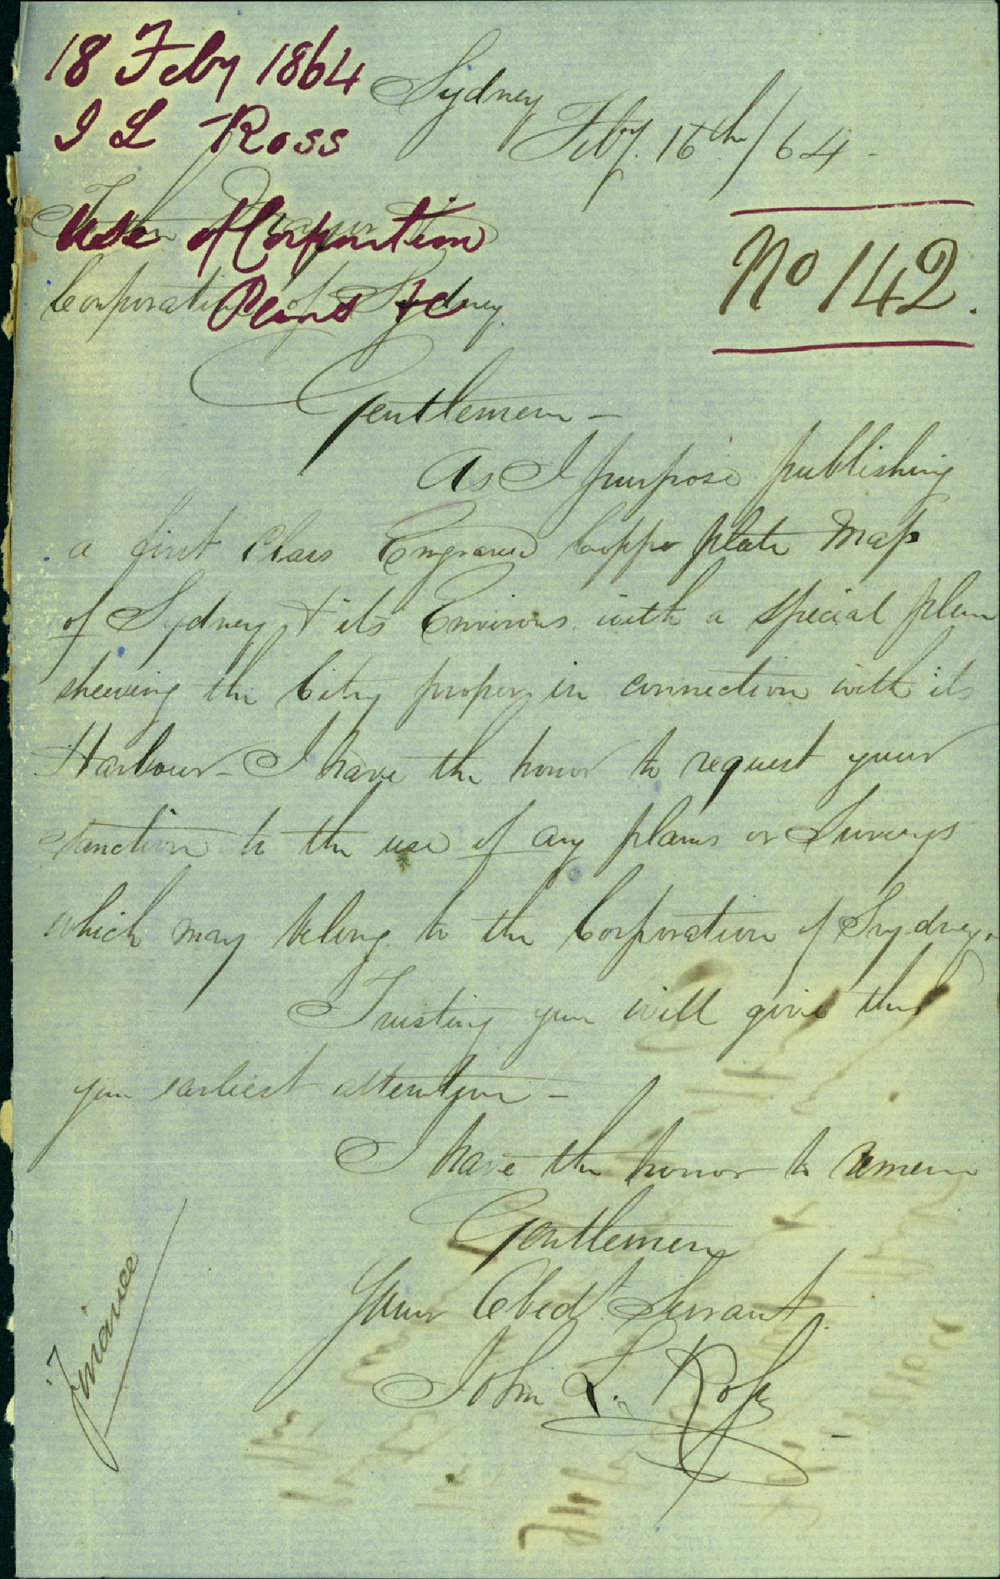 18 Feby 1864
J L Ross
Use of Corporation
Plans &c
Sydney
Feby. 16th/64 -
No 142.
Corporation of Sydney.
Gentlemen -
As I purpose publishing
a first Class Engraved Copper plate Map
of Sydney & its Environs with a special plan
shewing the City proper, in connection with its
Harbour - I have the honor to request your
Sanction to the use of any plans or Surveys
which may belong to the Corporation of Sydney.
Trusting you will give this
your earliest attention -
I have the honor to remain
Gentlemen
Your Obedt Servant.
John L. Ross
Finance